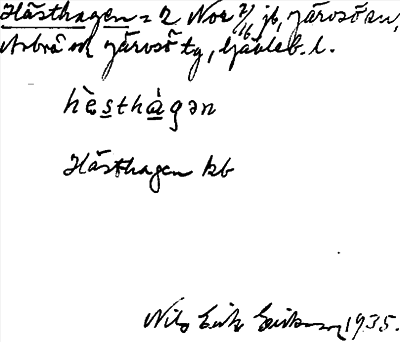 Hästhagen = 2 Nor 2/16 jb, Järvsö sn,
Arbrå och Järvsö tg, Gävleb. l.
hè̢sthàgən
Hästhagen kb
Nils Erik Eriksson 1935.